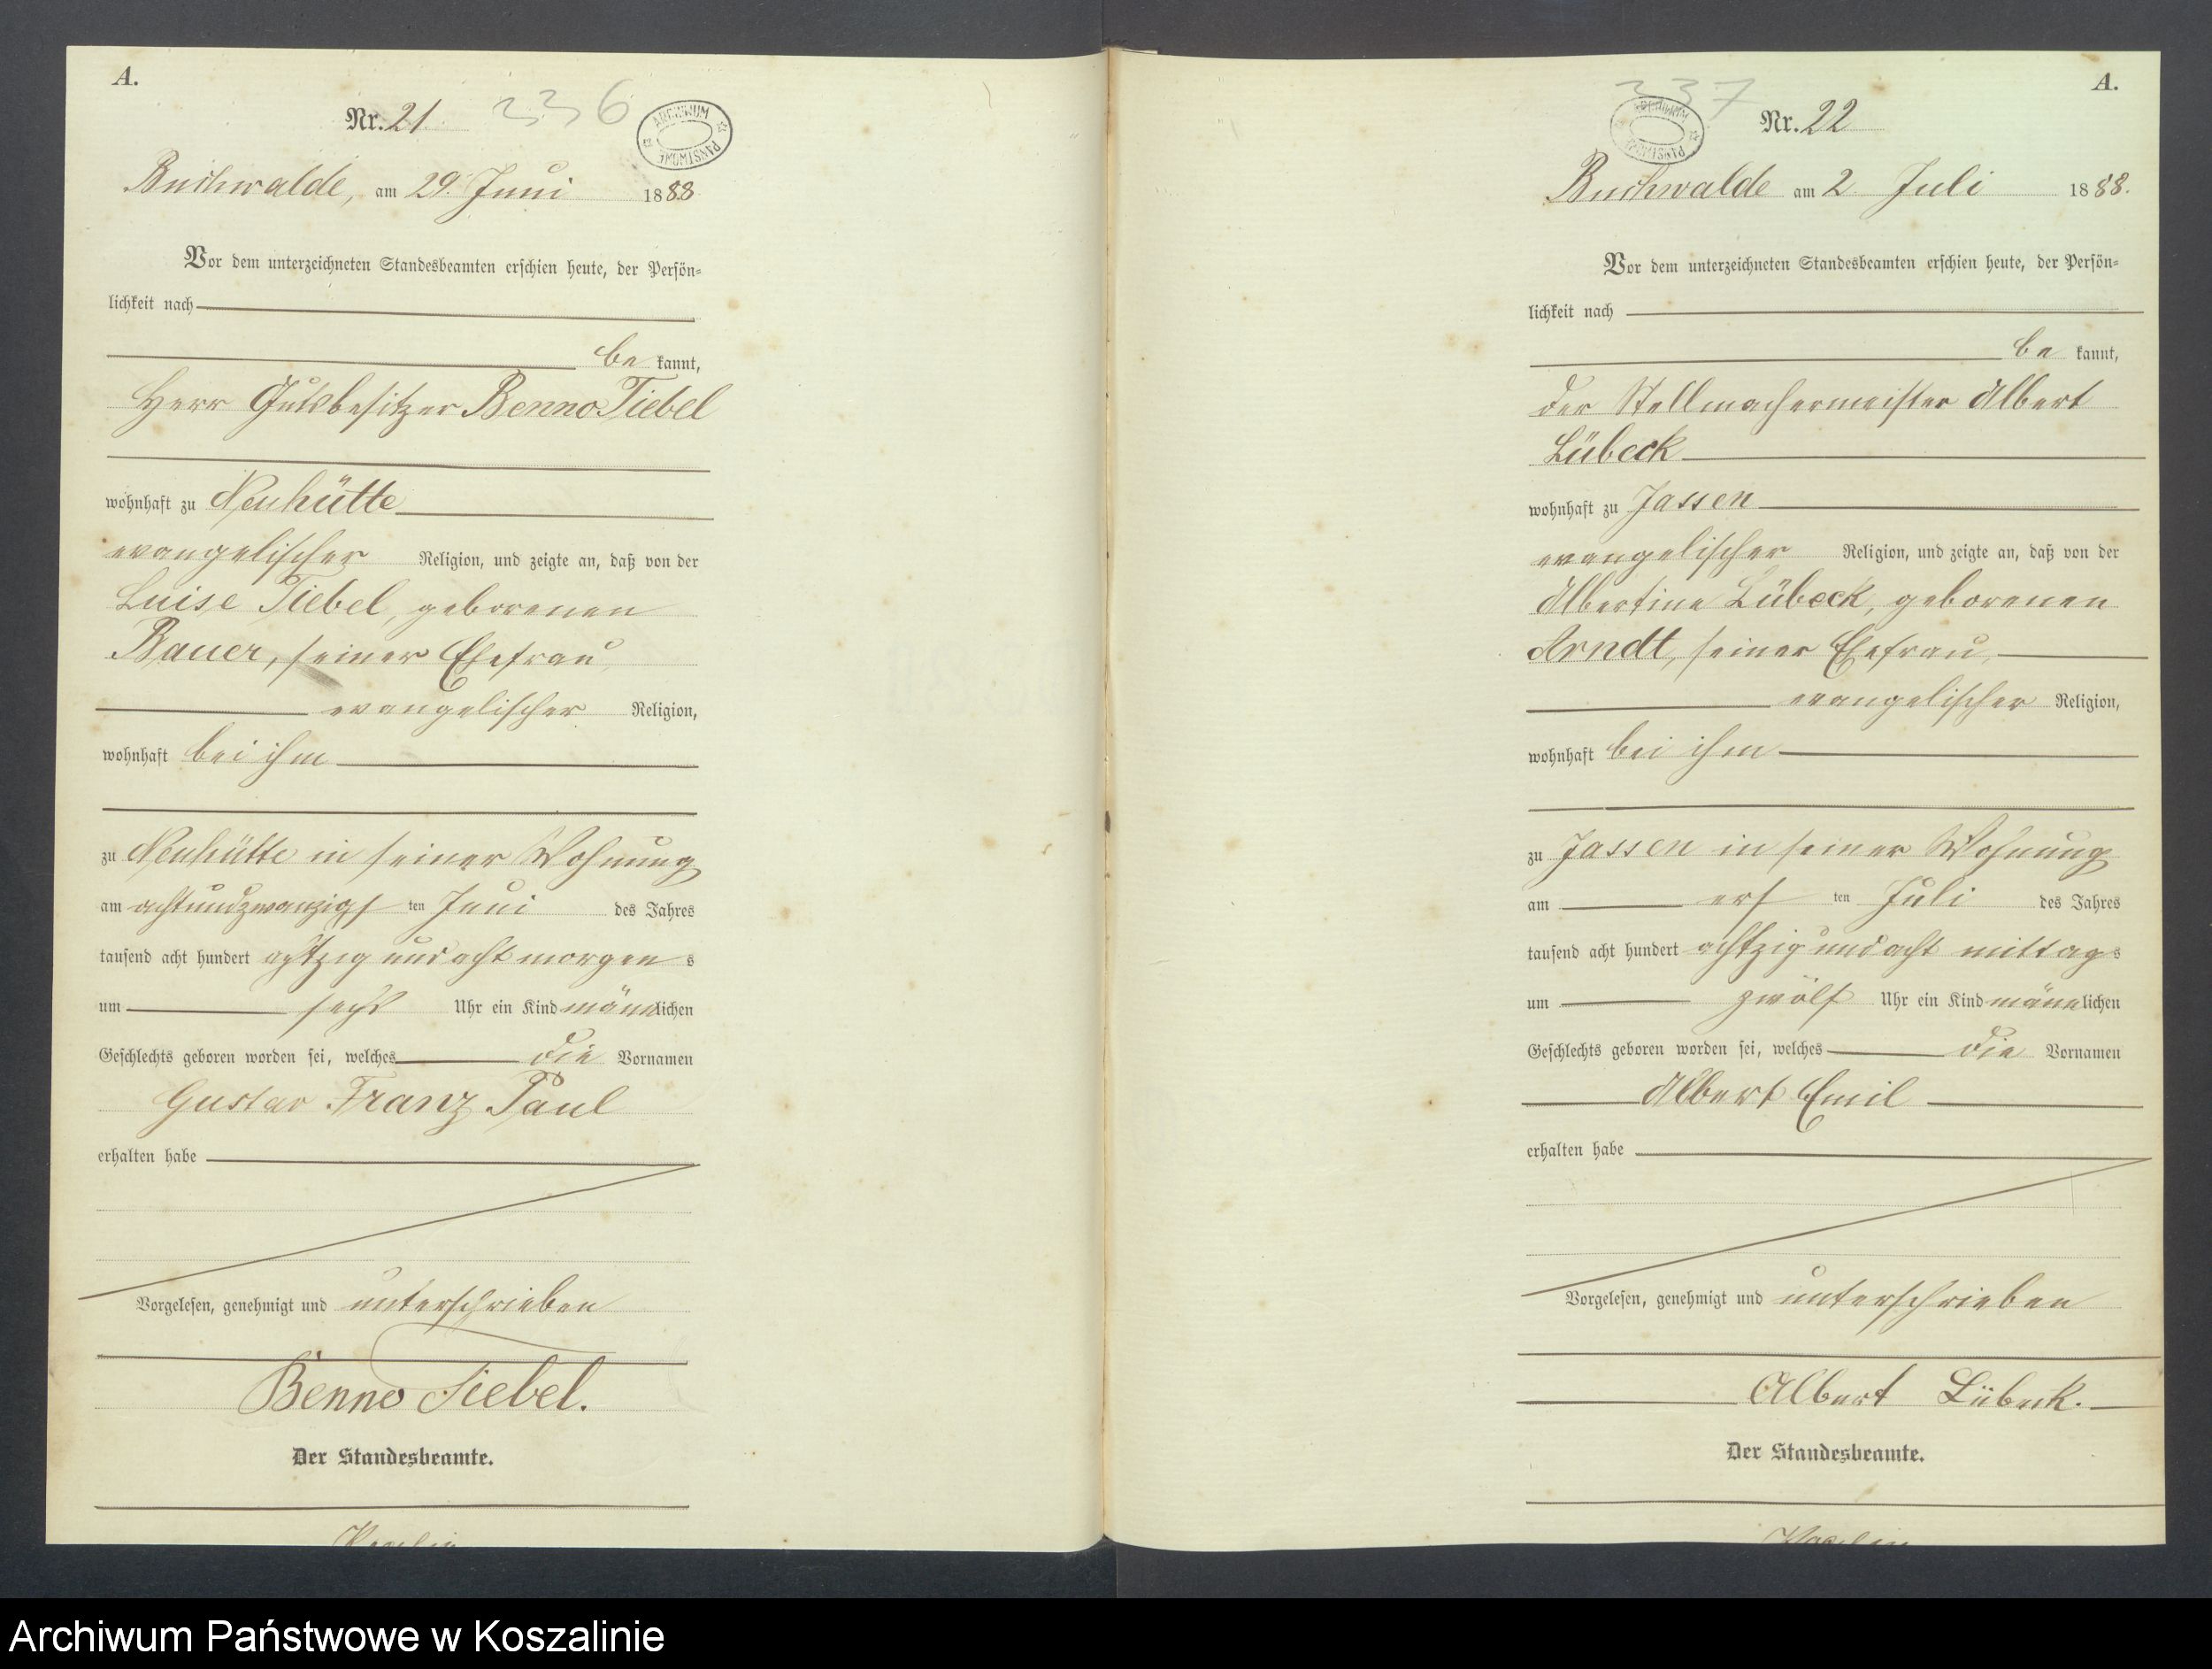 A.
Nr. 21
236
ARCHIWUM PAŃSTWOWE
Buchwalde, am 29. Juni 1888
Vor dem unterzeichneten Standesbeamten erschien heute, der Persön=
lichkeit nach
be kannt,
Herr Gutsbesitzer Benno Tiebel
wohnhaft zu Neuhütte
evangelischer Religion, und zeigte an, daß von der
Luise Tiebel, geborenen
Bauer, seiner Ehefrau,
evangelischer Religion,
wohnhaft bei ihm
zu Neuhütte in seiner Wohnung
am achtundzwanzigs ten Juni des Jahres
tausend acht hundert achtzig und acht morgen s
um sechs Uhr ein Kind männlichen
Geschlechts geboren worden sei, welches die Vornamen
Gustav Franz Paul
erhalten habe
Vorgelesen, genehmigt und unterschrieben
Benno Tiebel.
Der Standesbeamte.
A.
337
Nr. 22
ARCHIWUM PAŃSTWOWE
Buchwalde am 2 Juli 1888.
Vor dem unterzeichneten Standesbeamten erschien heute, der Persön=
lichkeit nach
be kannt,
der Stellmachermeister Albert
Lübeck
wohnhaft zu Jassen
evangelischer Religion, und zeigte an, daß von der
Albertine Lübeck, geborenen
Arndt, seiner Ehefrau,
evangelischer Religion,
wohnhaft bei ihm
zu Jassen in seiner Wohnung
am ers ten Juli des Jahres
tausend acht hundert achtzig und acht mittags
um zwölf Uhr ein Kind männlichen
Geschlechts geboren worden sei, welches die Vornamen
Albert Emil
erhalten habe
Vorgelesen, genehmigt und unterschrieben
Albert Lübeck.
Der Standesbeamte.
Archiwum Państwowe w Koszalinie